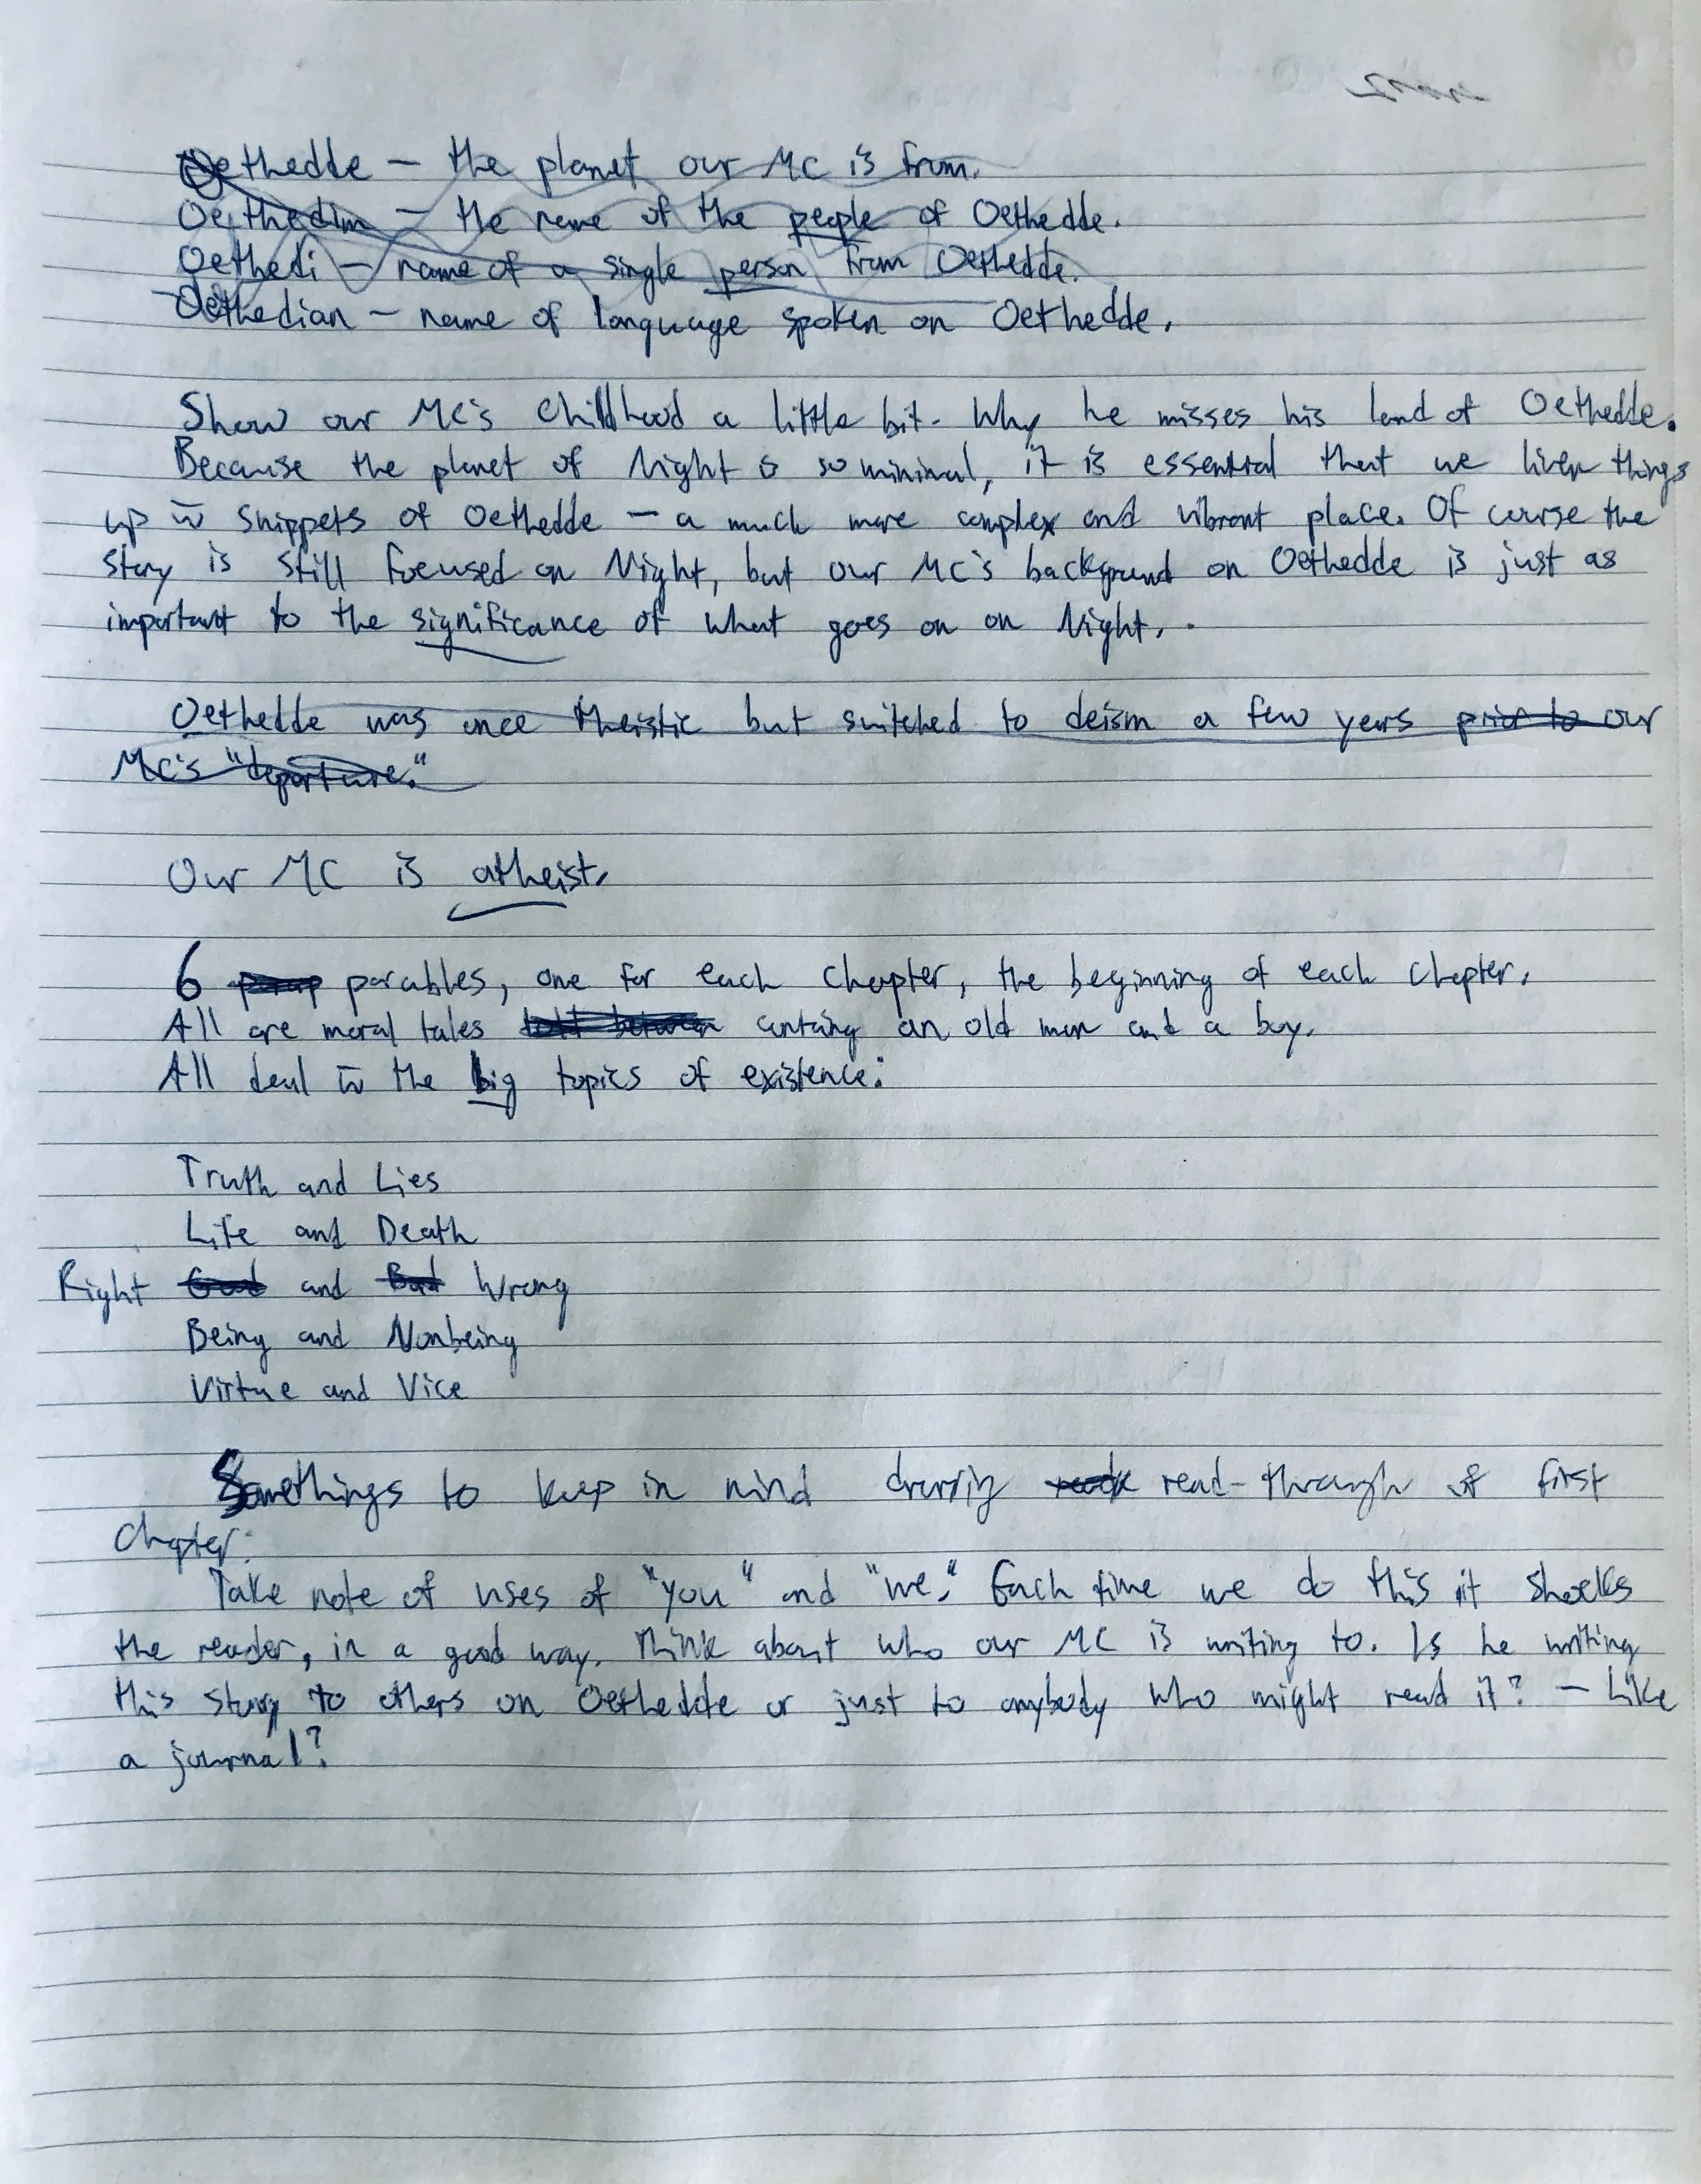 Oethedde – the planet our MC is from.
Oethedim – the name of the people of Oethedde.
Oethedi – name of a single person from Oethedde.
Oethedian – name of language spoken on Oethedde.
Show our MC's childhood a little bit. Why he misses his land of Oethedde.
Because the planet of Night is so minimal, it is essential that we liven things
up w̄ snippets of Oethedde – a much more complex and vibrant place. Of course the
story is still focused on Night, but our MC's background on Oethedde is just as
important to the significance of what goes on on Night.
Oethedde was once theistic but switched to deism a few years prior to our
MC's "departure."
Our MC is atheist.
6 parables, one for each chapter, the beginning of each chapter.
All are moral tales told between containg an old man and a boy.
All deal w̄ the big topics of existence:
Truth and Lies
Life and Death
Right Good and Bad Wrong
Being and Nonbeing
Virtue and Vice
Somethings to keep in mind during read-through of first
chapter:
Take note of uses of "you" and "we." Each time we do this it shocks
the reader, in a good way. Think about who our MC is writing to. Is he writing
this story to others on Oethedde or just to anybody who might read it? – Like
a journal?